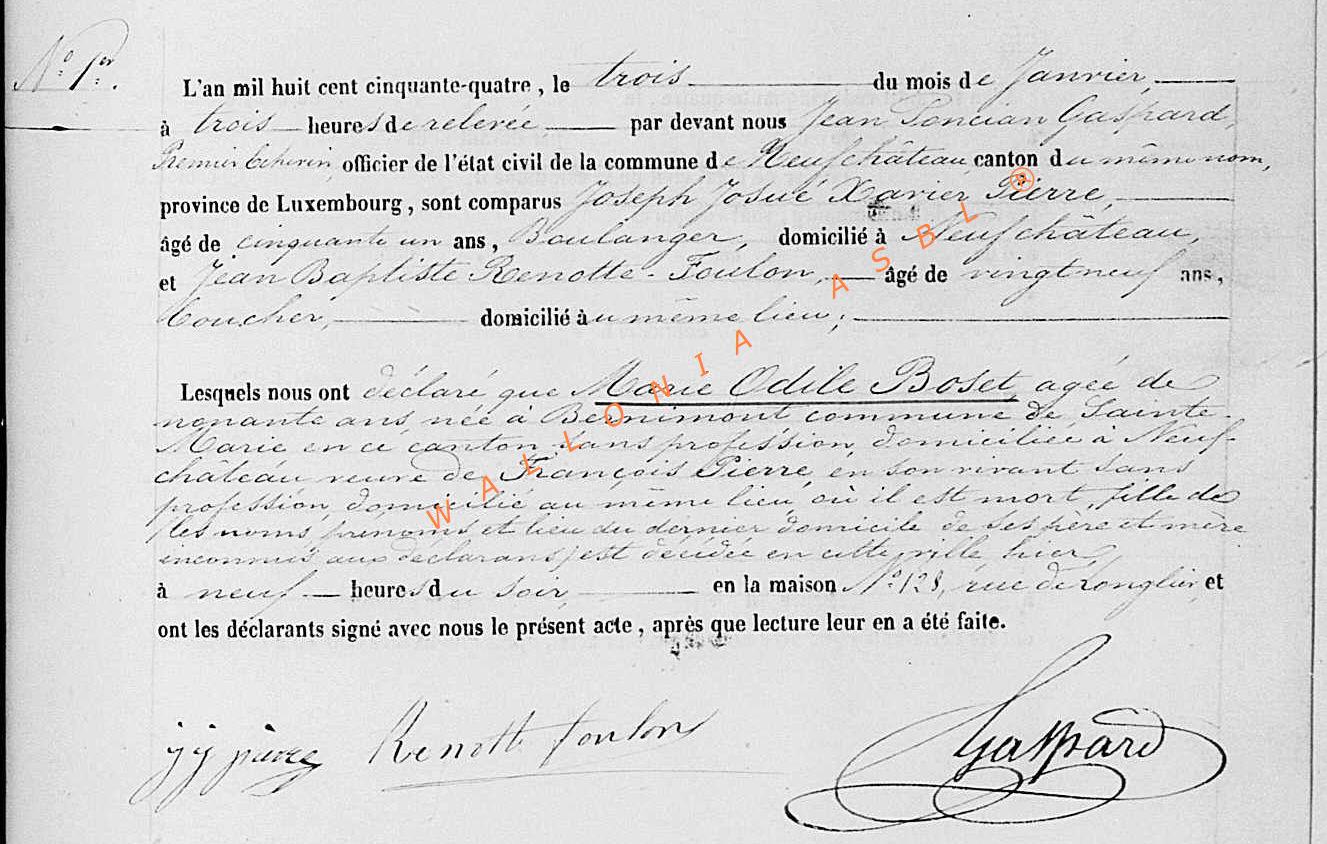 N.° 1.er
L'an mil huit cent cinquante-quatre, le trois du mois de Janvier,
à trois heures de relevée par devant nous Jean Poncian Gaspard,
Premier Echevin officier de l'état civil de la commune de Neufchâteau, canton du même nom,
province de Luxembourg, sont comparus Joseph Josué Xavier Pierre,
âgé de cinquante un ans, Boulanger, domicilié à Neufchâteau,
et Jean Baptiste Renotte-Foulon, âgé de vingt neuf ans,
Boucher, domicilié au même lieu;
Lesquels nous ont déclaré que Marie Odile Boset, agée de
nonante ans, née à Bernimont commune de Sainte-
Marie en ce canton, sans profession, domiciliée à Neuf-
château veuve de François Pierre, en son vivant sans
profession, domicilié au même lieu, où il est mort, fille de
(les noms, prénoms et lieu du dernier domicile de ses père et mère
inconnus aux déclarans) est décédée en cette ville, hier,
à neuf heures du soir, en la maison N.° 128, rue de Longlier, et
ont les déclarants signé avec nous le présent acte, après que lecture leur en a été faite.
jj pierre Renotte foulon Gaspard
WALLONIA ASBL ®